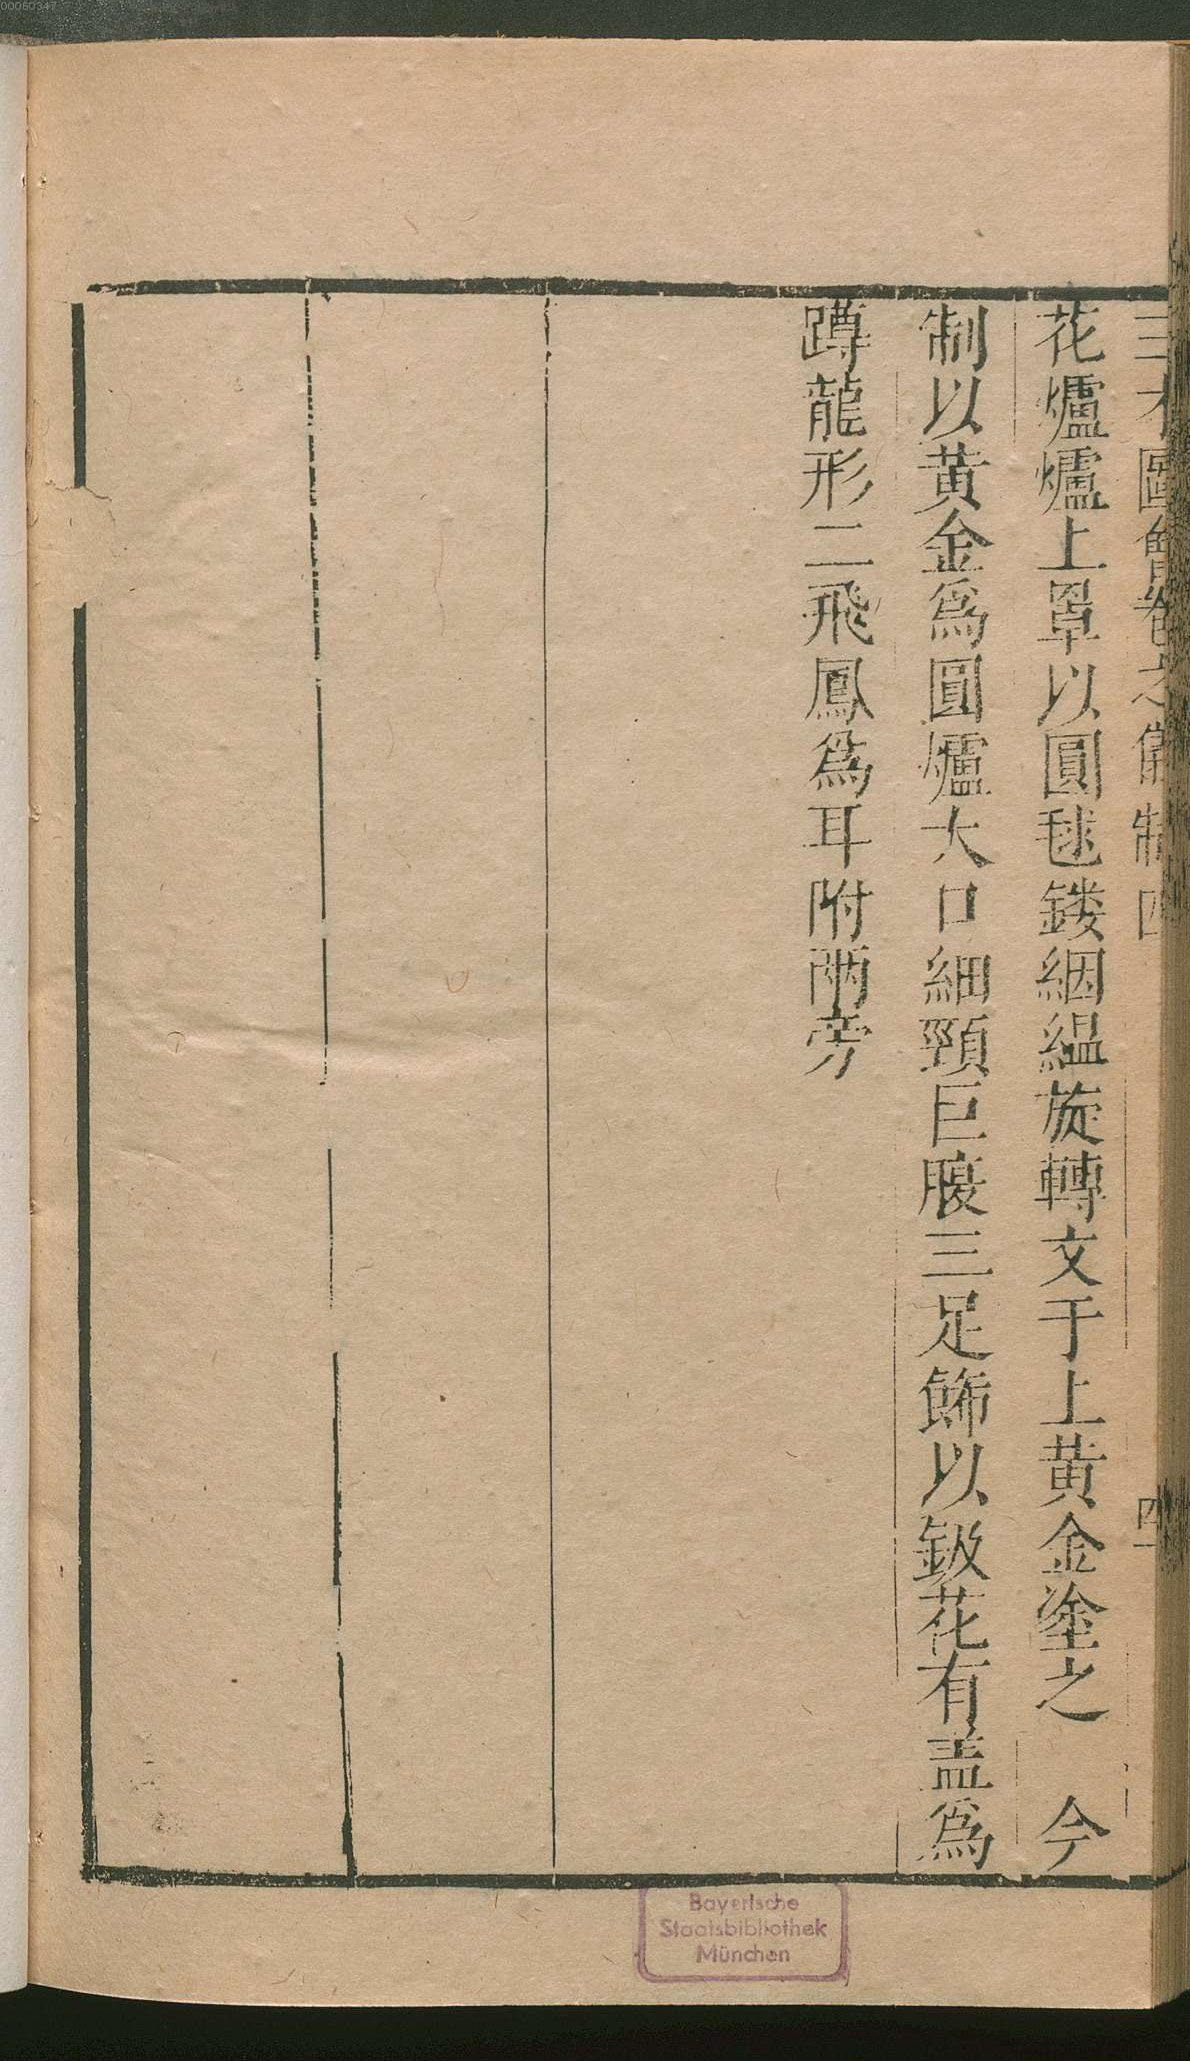 00060347
三才圖會卷之儀制四
四十
花爐爐上罩以圓毬鏤絪緼旋轉文于上黃金塗之　今
制以黃金爲圓爐大口細頸巨腹三足飾以鈒花有盖爲
蹲龍形二飛鳳爲耳附兩旁
Bayerische
Staatsbibliothek
München